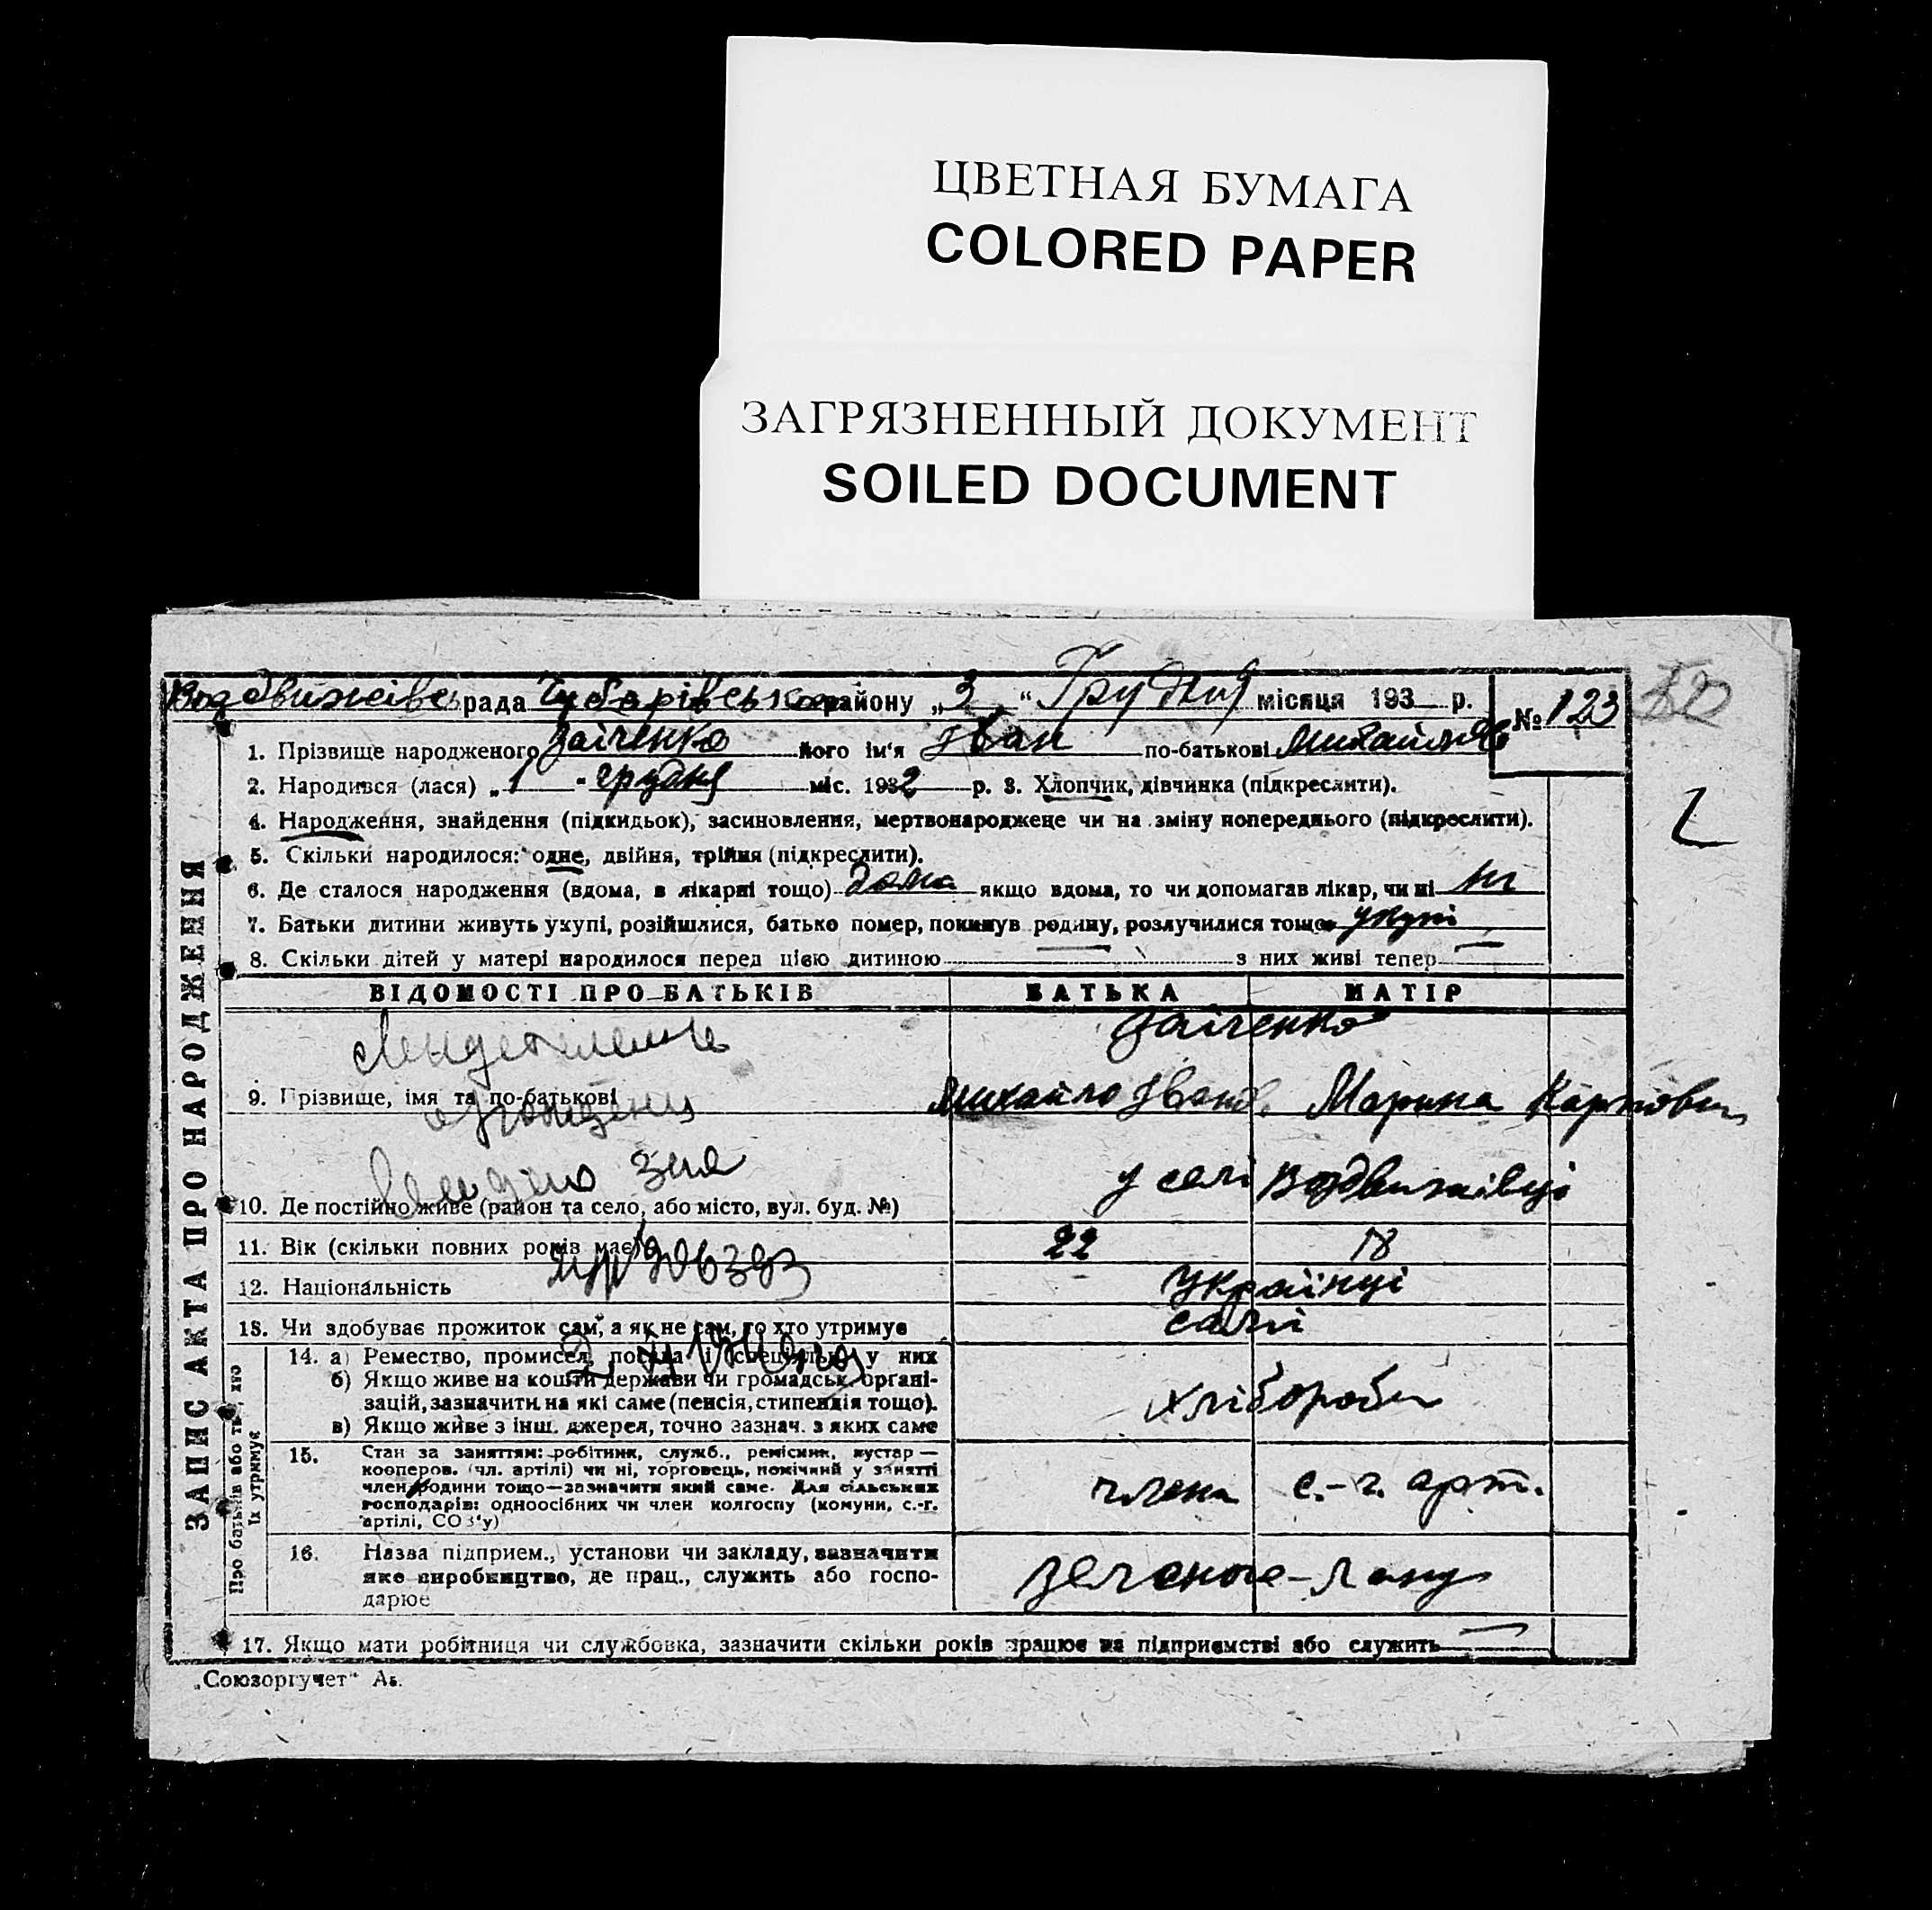 ЦВЕТНАЯ БУМАГА
COLORED PAPER
ЗАГРЯЗНЕННЫЙ ДОКУМЕНТ
SOILED DOCUMENT
Воздвижівсь рада Чубарівського району „3“ Грудня місяця 193 р. № 123
1. Прізвище народженого Заіченко його ім‘я Іван по-батькові Михайлов
2. Народився (лася) „1“ грудня міс. 1932 р. 3. Хлопчик, дівчинка (підкреслити).
4. Народження, знайдення (підкидьок), засиновлення, мертвонароджене чи на зміну попереднього (підкреслити).
5. Скільки народилося: одне, двійня, трійня (підкреслити).
6. Де сталося народження (вдома, в лікарні тощо) дома якщо вдома, то чи допомагав лікар, чи ні ні
7. Батьки дитини живуть укупі, розійшлися, батько помер, покинув родину, розлучилися тощо укупі
8. Скільки дітей у матері народилося перед цією дитиною — з них живі тепер —
ЗАПИС АКТА ПРО НАРОДЖЕННЯ
ВІДОМОСТІ ПРО БАТЬКІВ БАТЬКА МАТІР
Заіченко
9. Прізвище, імя та по-батькові Михайло Іванов. Марина Карповна
10. Де постійно живе (район та село, або місто, вул. буд. №) у селі Воздвижівці
11. Вік (скільки повних років має) 22 18
12. Національність Українці
13. Чи здобуває прожиток сам, а як не сам, то хто утримує самі
Про батьків або тих, хто їх утримує
14. а) Ремество, промисел, посада і спеціяльн. у них
б) Якщо живе на кошти держави чи громадськ. органі-
зацій, зазначити на які саме (пенсія, стипендія тощо).
в) Якщо живе з інш. джерел, точно зазнач. з яких саме
хлібороби
15. Стан за заняттям: робітник, служб., ремісник, кустар —
кооперов. (чл. артілі) чи ні, торговець, помічний у занятті
член родини тощо—зазначити який саме. Для сільських
господарів: одноосібних чи член колгоспу (комуни, с.-г.
артілі, СОЗ‘у)
члени с.-г. арт.
16. Назва підприєм., установи чи закладу, зазначити
яке виробництво, де прац., служить або госпо-
дарює
17. Якщо мати робітниця чи службовка, зазначити скільки років працює на підприємстві або служить —
„Союзоргучет“